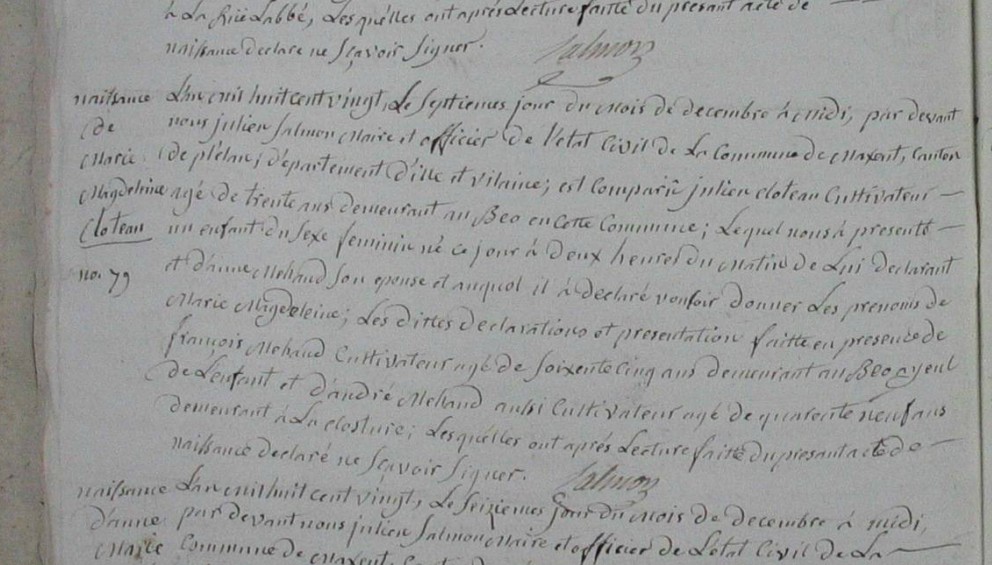 à La Ruë Labbé, Lesquélles ont aprés Lecture faitte du presant acte de
naissance declaré ne sçavoir signer. Salmon
naissance de Marie Magdeleine Cloteau no. 79
L'an mil huit cent vingt, Le septiemes jour du mois de decembre à midi, par devant
nous julien Salmon Maire et officier de l'etat Civil de La Commune de Maxent, Canton
de plélan, département d'ille et vilaine; est Comparû julien cloteau Cultivateur
agé de trente ans demeurant au Beo en Cette Commune; Lequel nous à presenté
un enfant du sexe feminin né ce jour à Deux heures du Matin de Lui declarant
et d'anne Mehaud son epouse et auquel il à declaré vouloir donner Les prenoms de
Marie Magdeleine; Les dittes declarations et presentation faitte en presence de
françois Mehaud Cultivateur agé de soixente cinq ans demeurant au Beo ayeul
de L'enfant et d'andré Mehaud aussi Cultivateur agé de quarente neuf ans
demeurant à La closture; Lesquélles ont aprés Lecture faitte du presant acte de
naissance declaré ne sçavoir signer. Salmon
naissance d'anne Marie
L'an mil huit cent vingt, Le seiziemes jour du mois de decembre à midi,
par devant nous julien Salmon Maire et officier de L'etat Civil de La
Commune de Maxent,